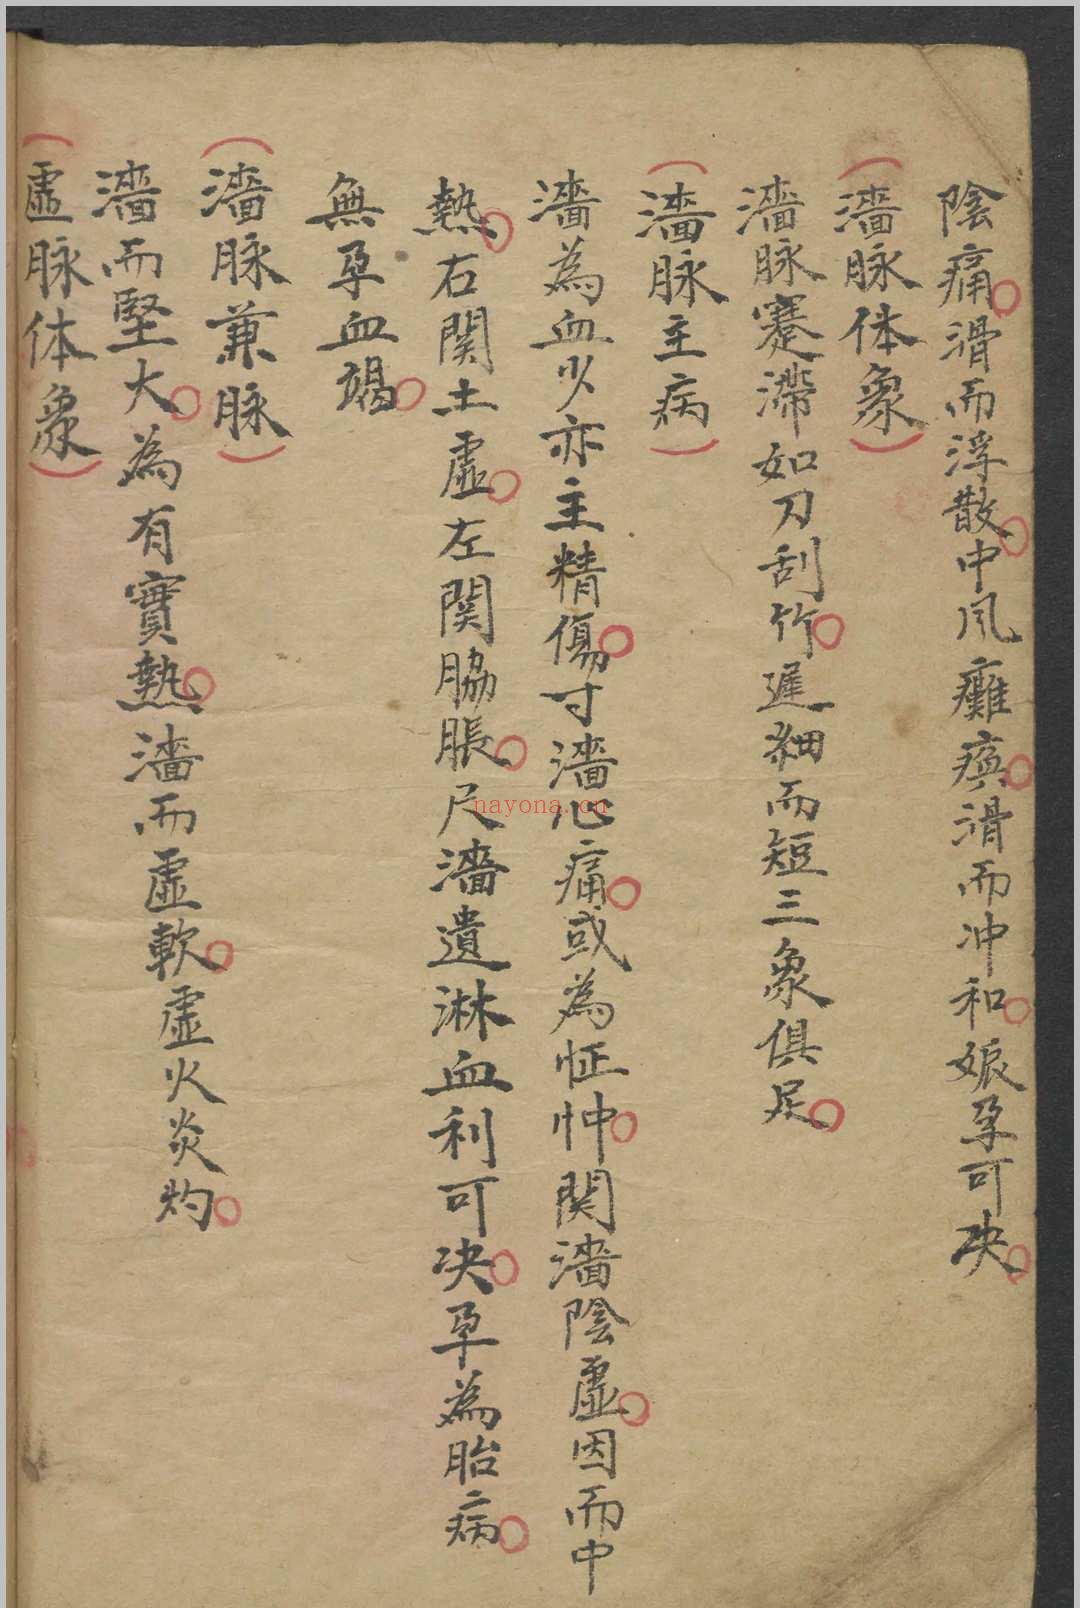 陰痛。滑而浮散。中风癱瘓。滑而冲和。娠孕可决。
(濇脉体象)
濇脉蹇滞如刀刮竹。遲細而短三象俱足。
(濇脉主病)
濇為血少亦主精傷。寸濇心痛。或為怔忡。関濇陰虛。因而中
熱。右関土虛。左関脇脹。尺濇遺淋血利可决。孕為胎病。
無孕血竭。
(濇脉兼脉)
濇而堅大。為有實熱。濇而虛軟。虛火炎灼。
(虛脉体象)
nayona.cn